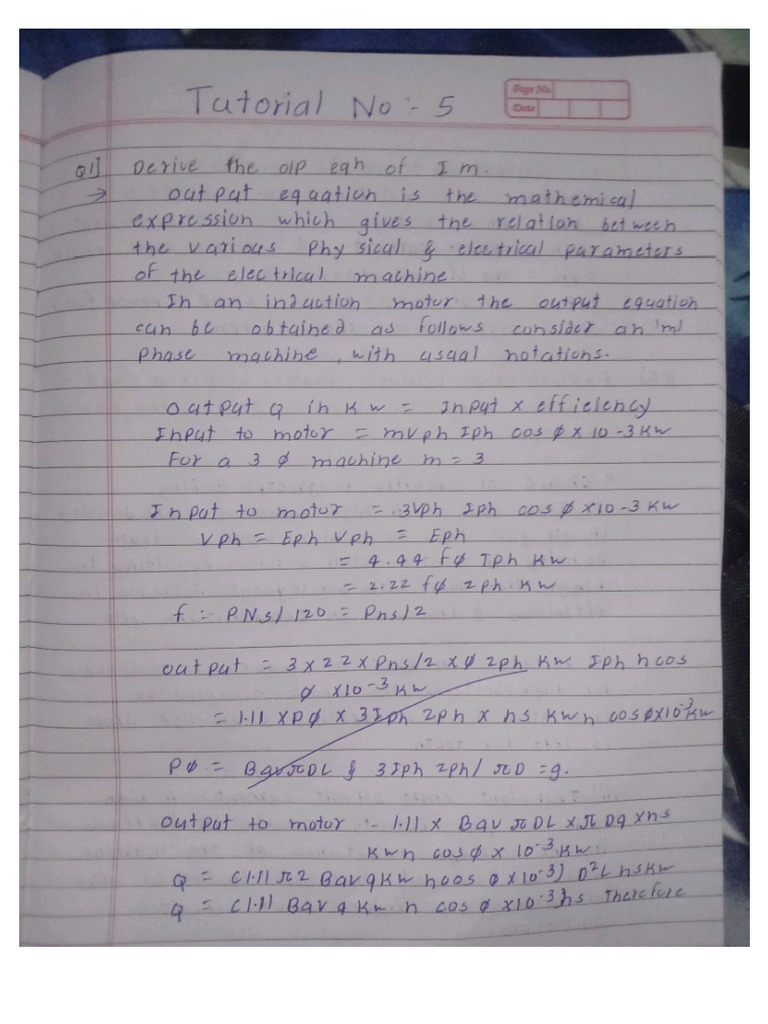 Tutorial No :- 5
Page No.
Date
Q1] Derive the o/p eqn of I m.
→ output equation is the mathemical
expression which gives the relation between
the various Phy sical & electrical parameters
of the electrical machine
In an induction motor the output equation
can be obtained as follows consider an 'm'
Phase machine, with usual notations.
output Q in Kw = Input x efficiency
Input to motor = mvph Iph cos ø x 10 -3 Kw
For a 3 ø machine m = 3
Input to motor = 3Vph Iph cos ø x10 -3 Kw
Vph = Eph Vph = Eph
= 4.44 fø Tph Kw
= 2.22 fø 2ph Kw
f = P.Ns/120 = Pns/2
output = 3 x 2 2 x Pns/2 x ø 2ph Kw Iph n cos
ø x10⁻³ Kw
= 1.11 xPø x 3Iph 2ph x ns Kwn cos øx10⁻³Kw
Pø = Bav πDL & 3Iph 2ph/ πD = q.
output to motor :- 1.11 x Bav πDL x π Dq xns
Kwn cos ø x 10⁻³ Kw
Q = C1.11 π2 Bav qKw ncos ø x10⁻³) D²L nsKw
Q = C1.11 Bav q Kw n cos ø x10⁻³) ns Therefore